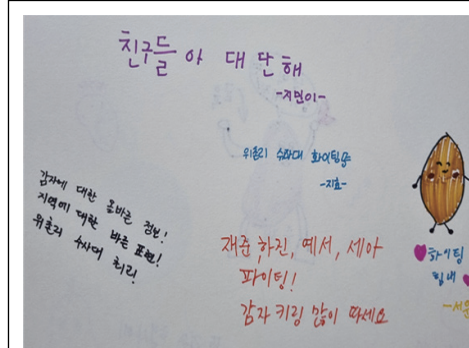 친구들아 대단해
-지민이-
위촌리 수사대 화이팅
-지효-
감자에 대한 올바른 정보!
지역에 대한 바른 표현!
위촌리 수사대 최고!
재준, 하진, 예서, 세아
파이팅!
감자 키링 많이 따세요
화이팅
힘내